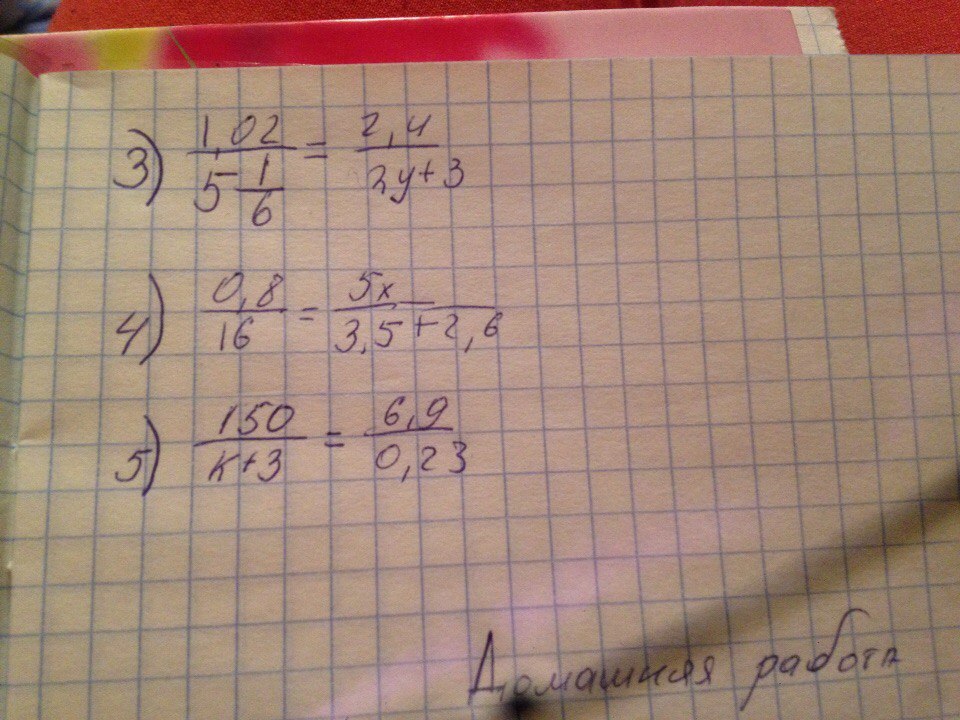 3) 1,02 / 5 1/6 = 2,4 / 2y+3
4) 0,8 / 16 = 5x / 3,5+2,6
5) 150 / к+3 = 6,9 / 0,23
Домашняя работа